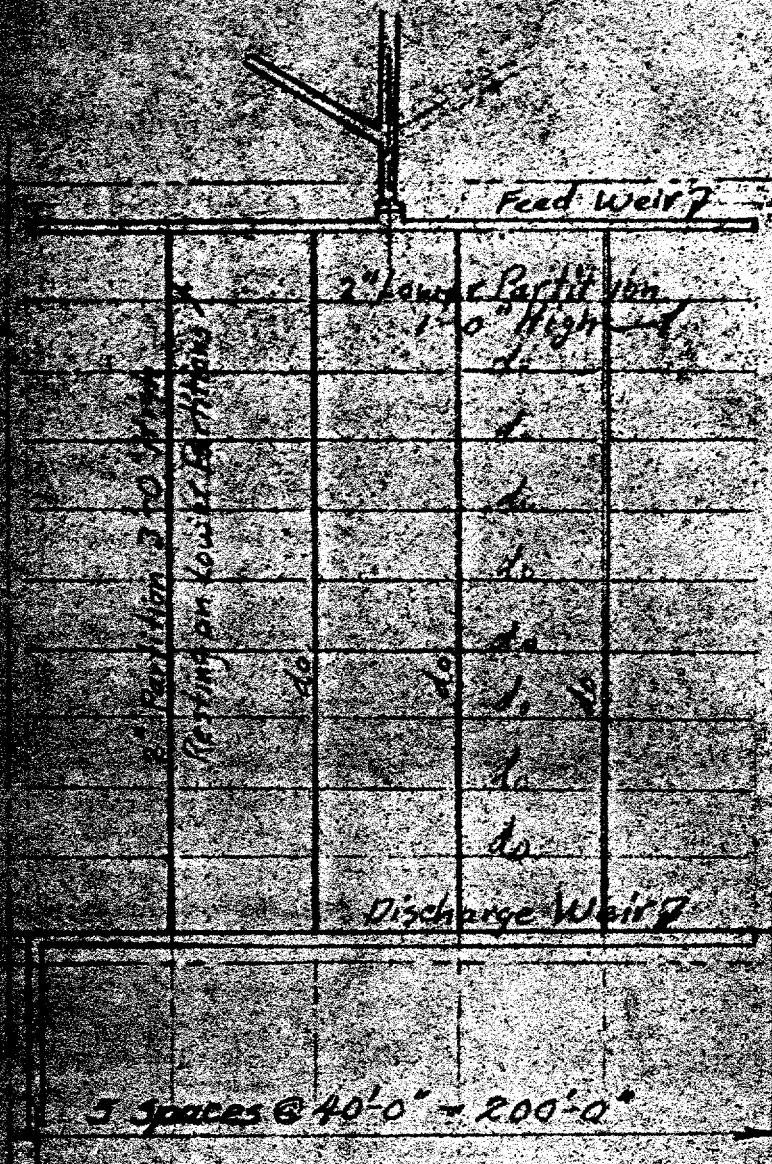 Feed Weir
2" Lower Partition
1'-0" High
do
do
do
do
do
do
do
do
2" Partition 3'-0" High
Resting on Lower Partitions
do
do
do
Discharge Weir
5 Spaces @ 40'-0" = 200'-0"